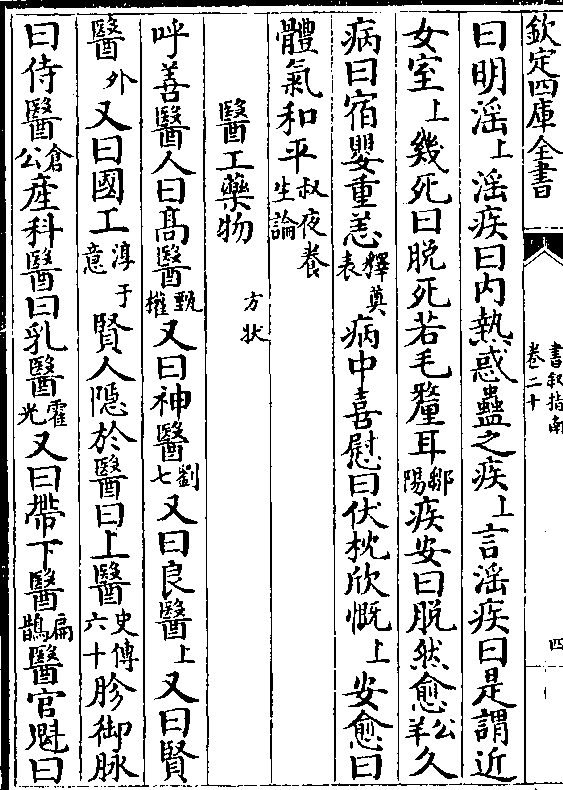 欽定四庫全書
書叙指南
卷二十
四
曰明淫上淫疾曰内熱惑蠱之疾上言淫疾曰是謂近
女室上幾死曰脱死若毛氂耳鄒陽疾安曰脱然愈公羊久
病曰宿嬰重恙釋奠表病中喜慰曰伏枕欣慨上安愈曰
體氣和平叔夜養生論
醫工藥物方状
呼善醫人曰髙醫甄權又曰神醫劉七又曰良醫上又曰賢
醫外又曰國工淳于意賢人隠於醫曰上醫史傳六十胗御脉
曰侍醫倉公產科醫曰乳醫霍光又曰帶下醫扁鵲醫官尅曰